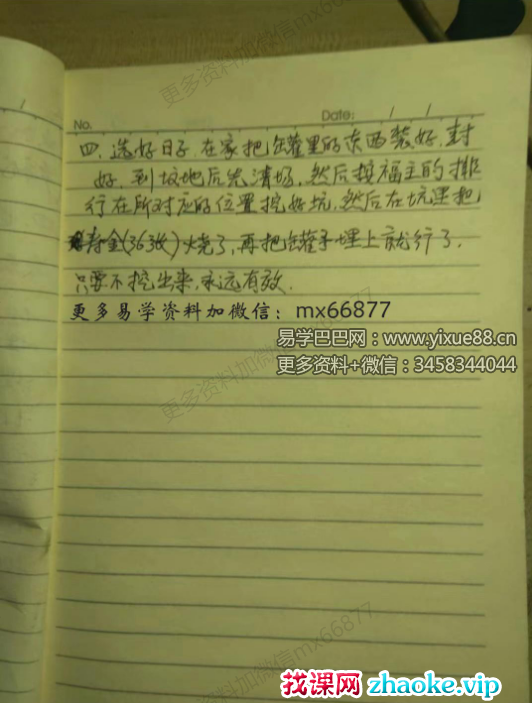 更多资料加微信mx66877
No.
Date: / /
四、选好日子,在家把缶罐里的东西装好,封
好,到坟地后先清场,然后按福主的排
行在所对应的位置挖好坑,然后在坑里把
寿金(363张)烧了,再把缶罐子埋上就行了.
只要不挖出来,永远有效.
更多易学资料加微信:mx66877
易学巴巴网:www.yixue88.cn
更多资料+微信:3458344044
更多资料加微信mx66877
更多资料加微信mx66877
找课网 zhaoke.vip